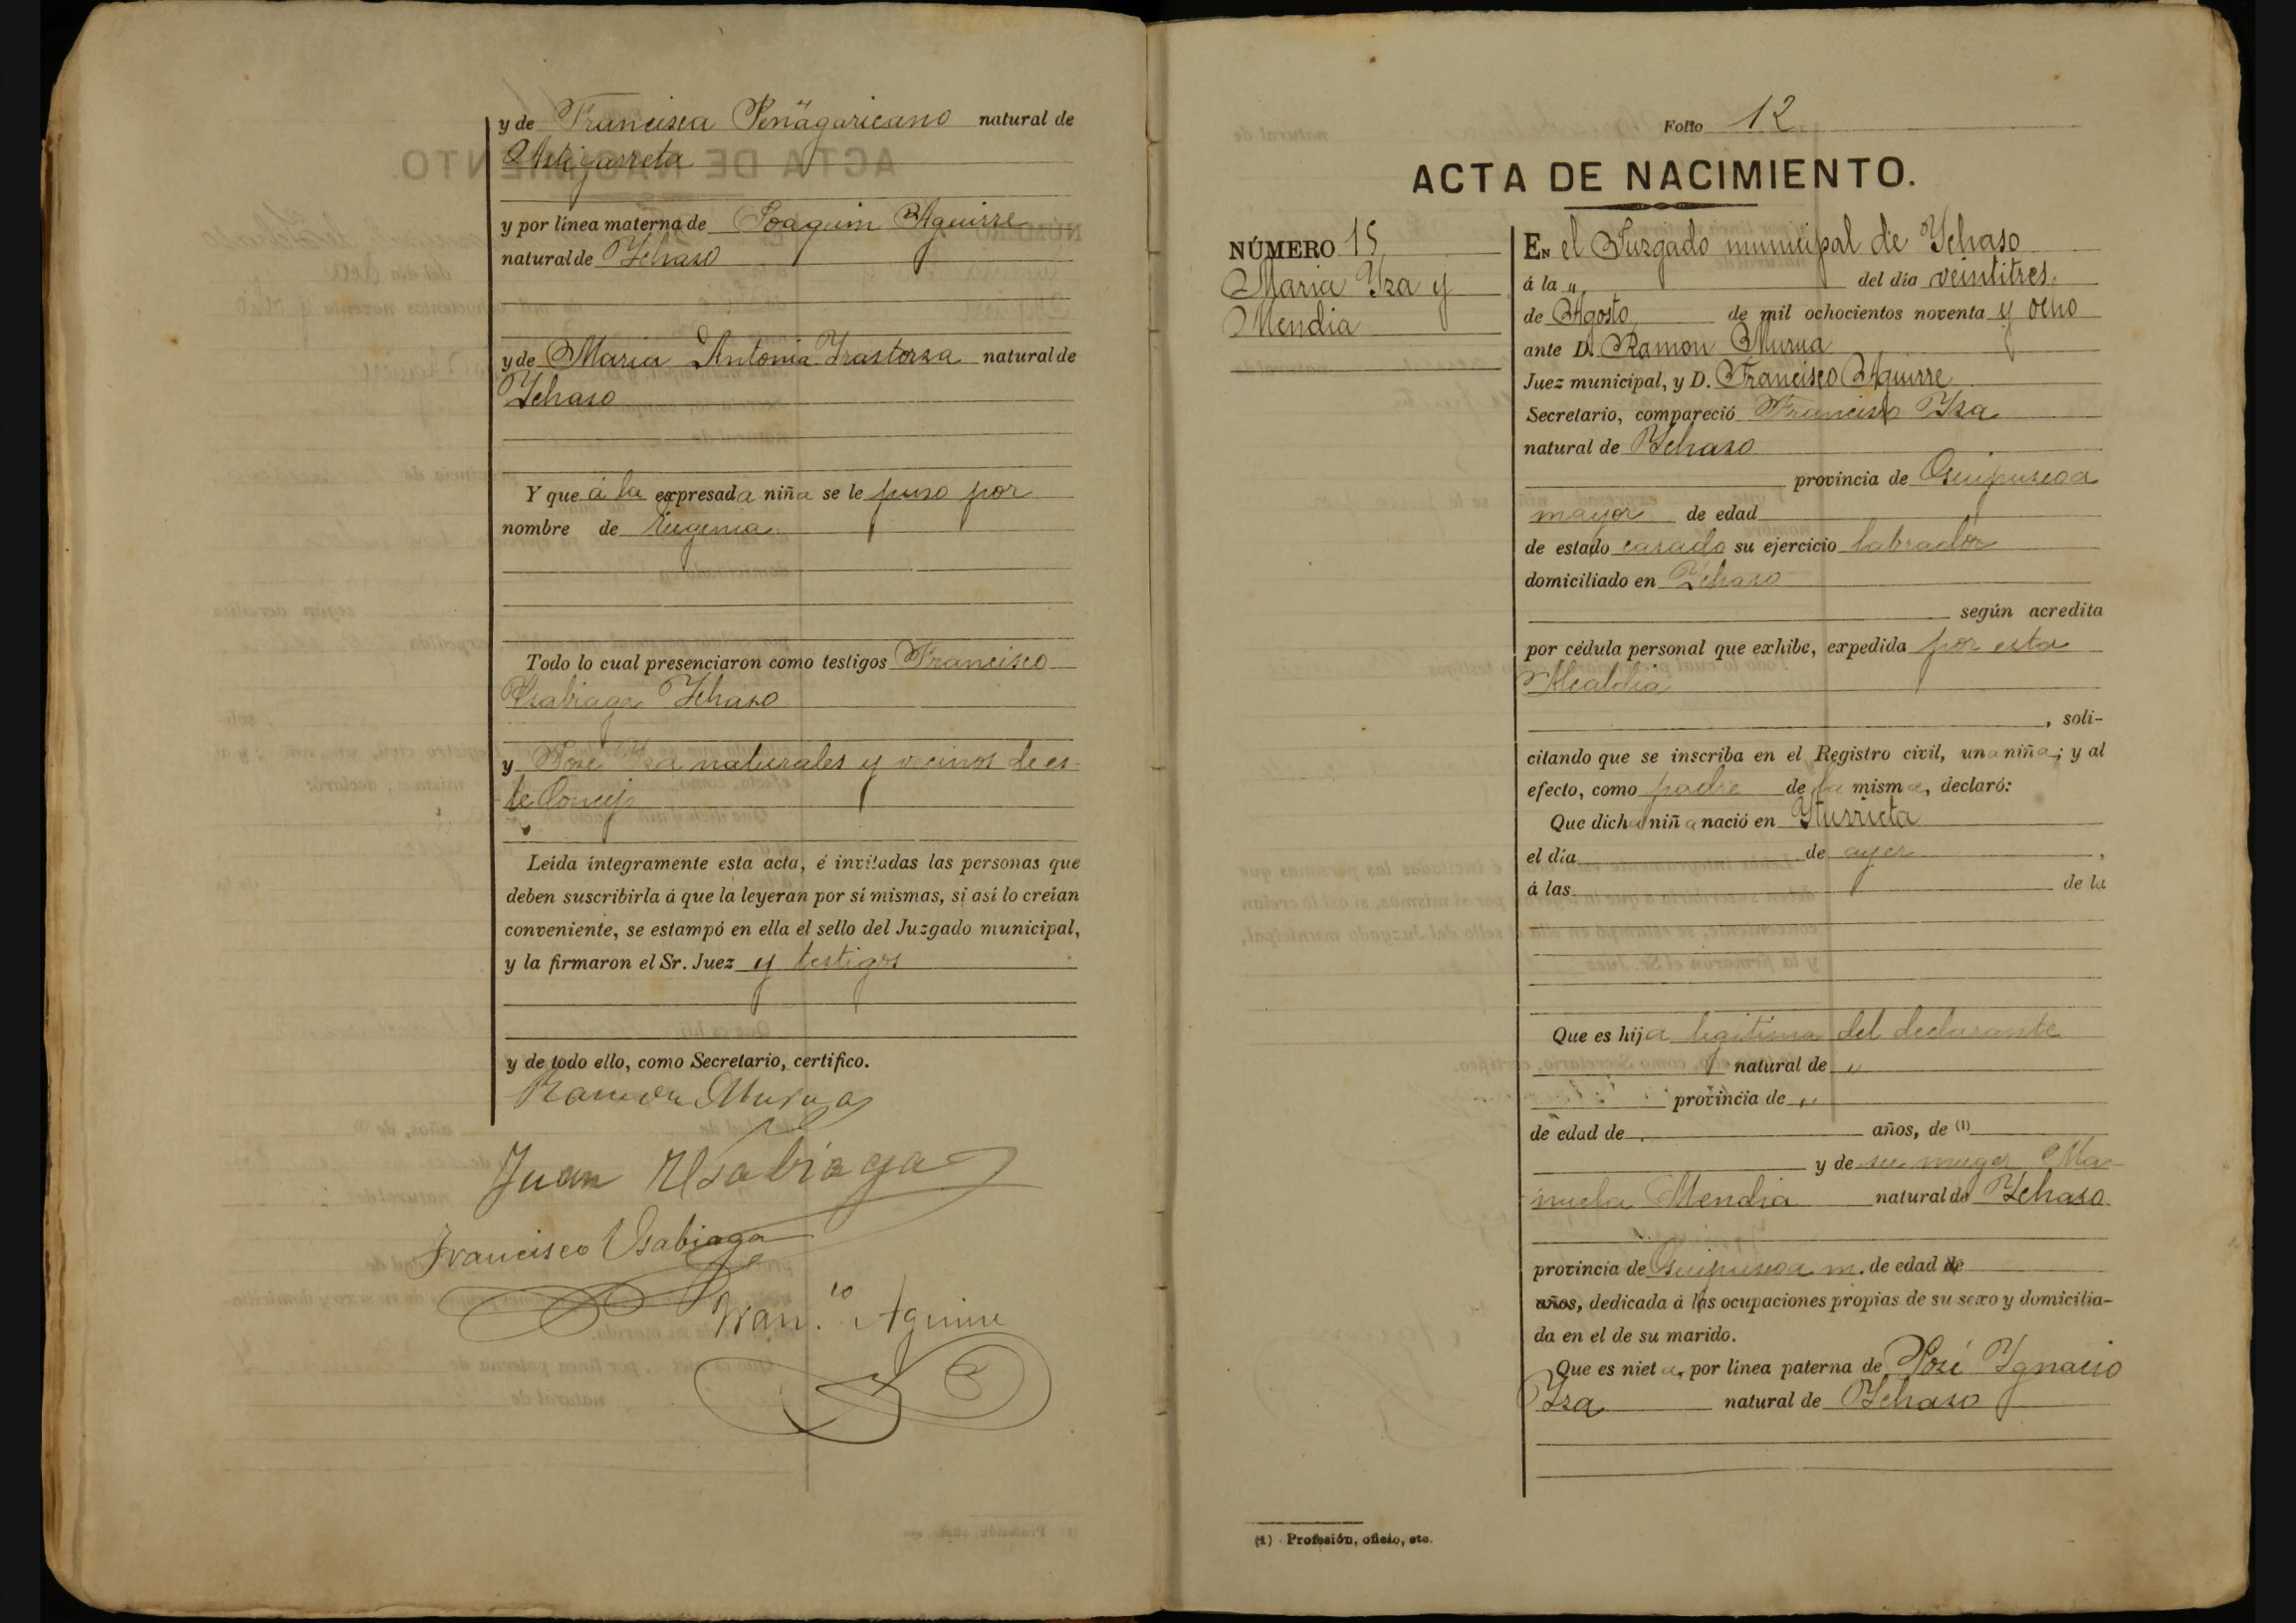 y de Francisca Peñagaricano natural de
Astigarreta
y por línea materna de Joaquin Aguirre
natural de Ychaso
y de Maria Antonia Yrastorza natural de
Ychaso
Y que á la expresada niña se le puso por
nombre de Eugenia
Todo lo cual presenciaron como testigos Francisco
Usabiaga Ychaso
y José Yza naturales y vecinos de es-
te Concejo
Leída íntegramente esta acta, é invitadas las personas que
deben suscribirla á que la leyeran por sí mismas, si así lo creían
conveniente, se estampó en ella el sello del Juzgado municipal,
y la firmaron el Sr. Juez y testigos
y de todo ello, como Secretario, certifico.
Ramon Murua
Juan Usabiaga
Francisco Usabiaga
Fran.co Aguirre
Folio 12
ACTA DE NACIMIENTO.
NÚMERO 15
Maria Yza y
Mendia
EN el Juzgado municipal de Ychaso
á la " del día veintitres
de Agosto de mil ochocientos noventa y ocho
ante D. Ramon Murua
Juez municipal, y D. Francisco Aguirre
Secretario, compareció Francisco Yza
natural de Ychaso
provincia de Guipuscoa
mayor de edad
de estado casado su ejercicio labrador
domiciliado en Ychaso
según acredita
por cédula personal que exhibe, expedida por esta
Alcaldia
, soli-
citando que se inscriba en el Registro civil, una niña; y al
efecto, como padre de la misma, declaró:
Que dicha niña nació en Yturrieta
el día de ayer,
á las de la
Que es hija legitima del declarante
natural de "
provincia de "
de edad de años, de (1)
y de su muger Ma-
nuela Mendia natural de Ychaso
provincia de Guipuscoa m. de edad de
años, dedicada á las ocupaciones propias de su sexo y domicilia-
da en el de su marido.
Que es nieta, por línea paterna de José Ygnacio
Yza natural de Ychaso
(1) Profesión, oficio, etc.